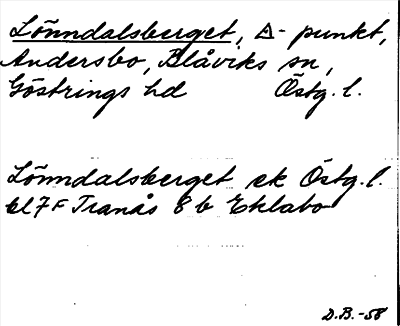 Lönndalsberget, △- punkt,
Andersbo, Blåviks sn,
Göstrings hd Östg. l.
Lönndalsberget ek Östg. l.
bl 7F Tranås 8 b Eklabo
D.B.-58